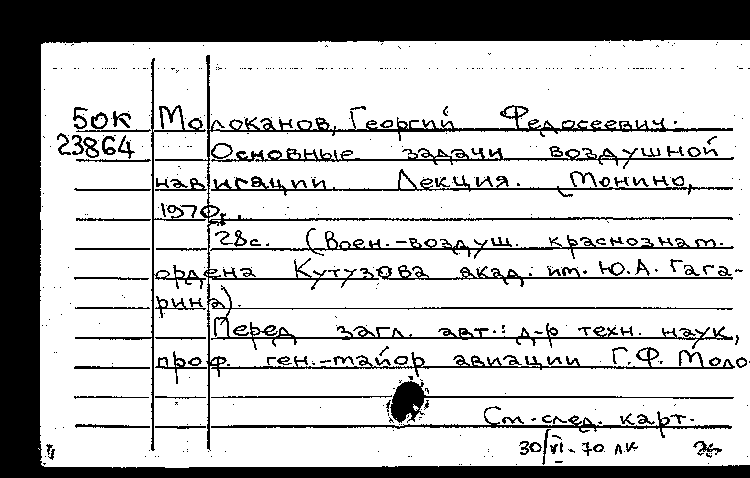 50К Молоканов, Георгий Федосеевич.
23864 Основные задачи воздушной
навигации. Лекция. Монино,
1970.
28с. (Воен.-воздуш. краснознам.
ордена Кутузова акад. им. Ю.А. Гага-
рина).
Перед загл. авт.: д-р техн. наук,
проф. ген.-майор авиации Г.Ф. Моло-
См. след. карт.
30/VI-70 лк